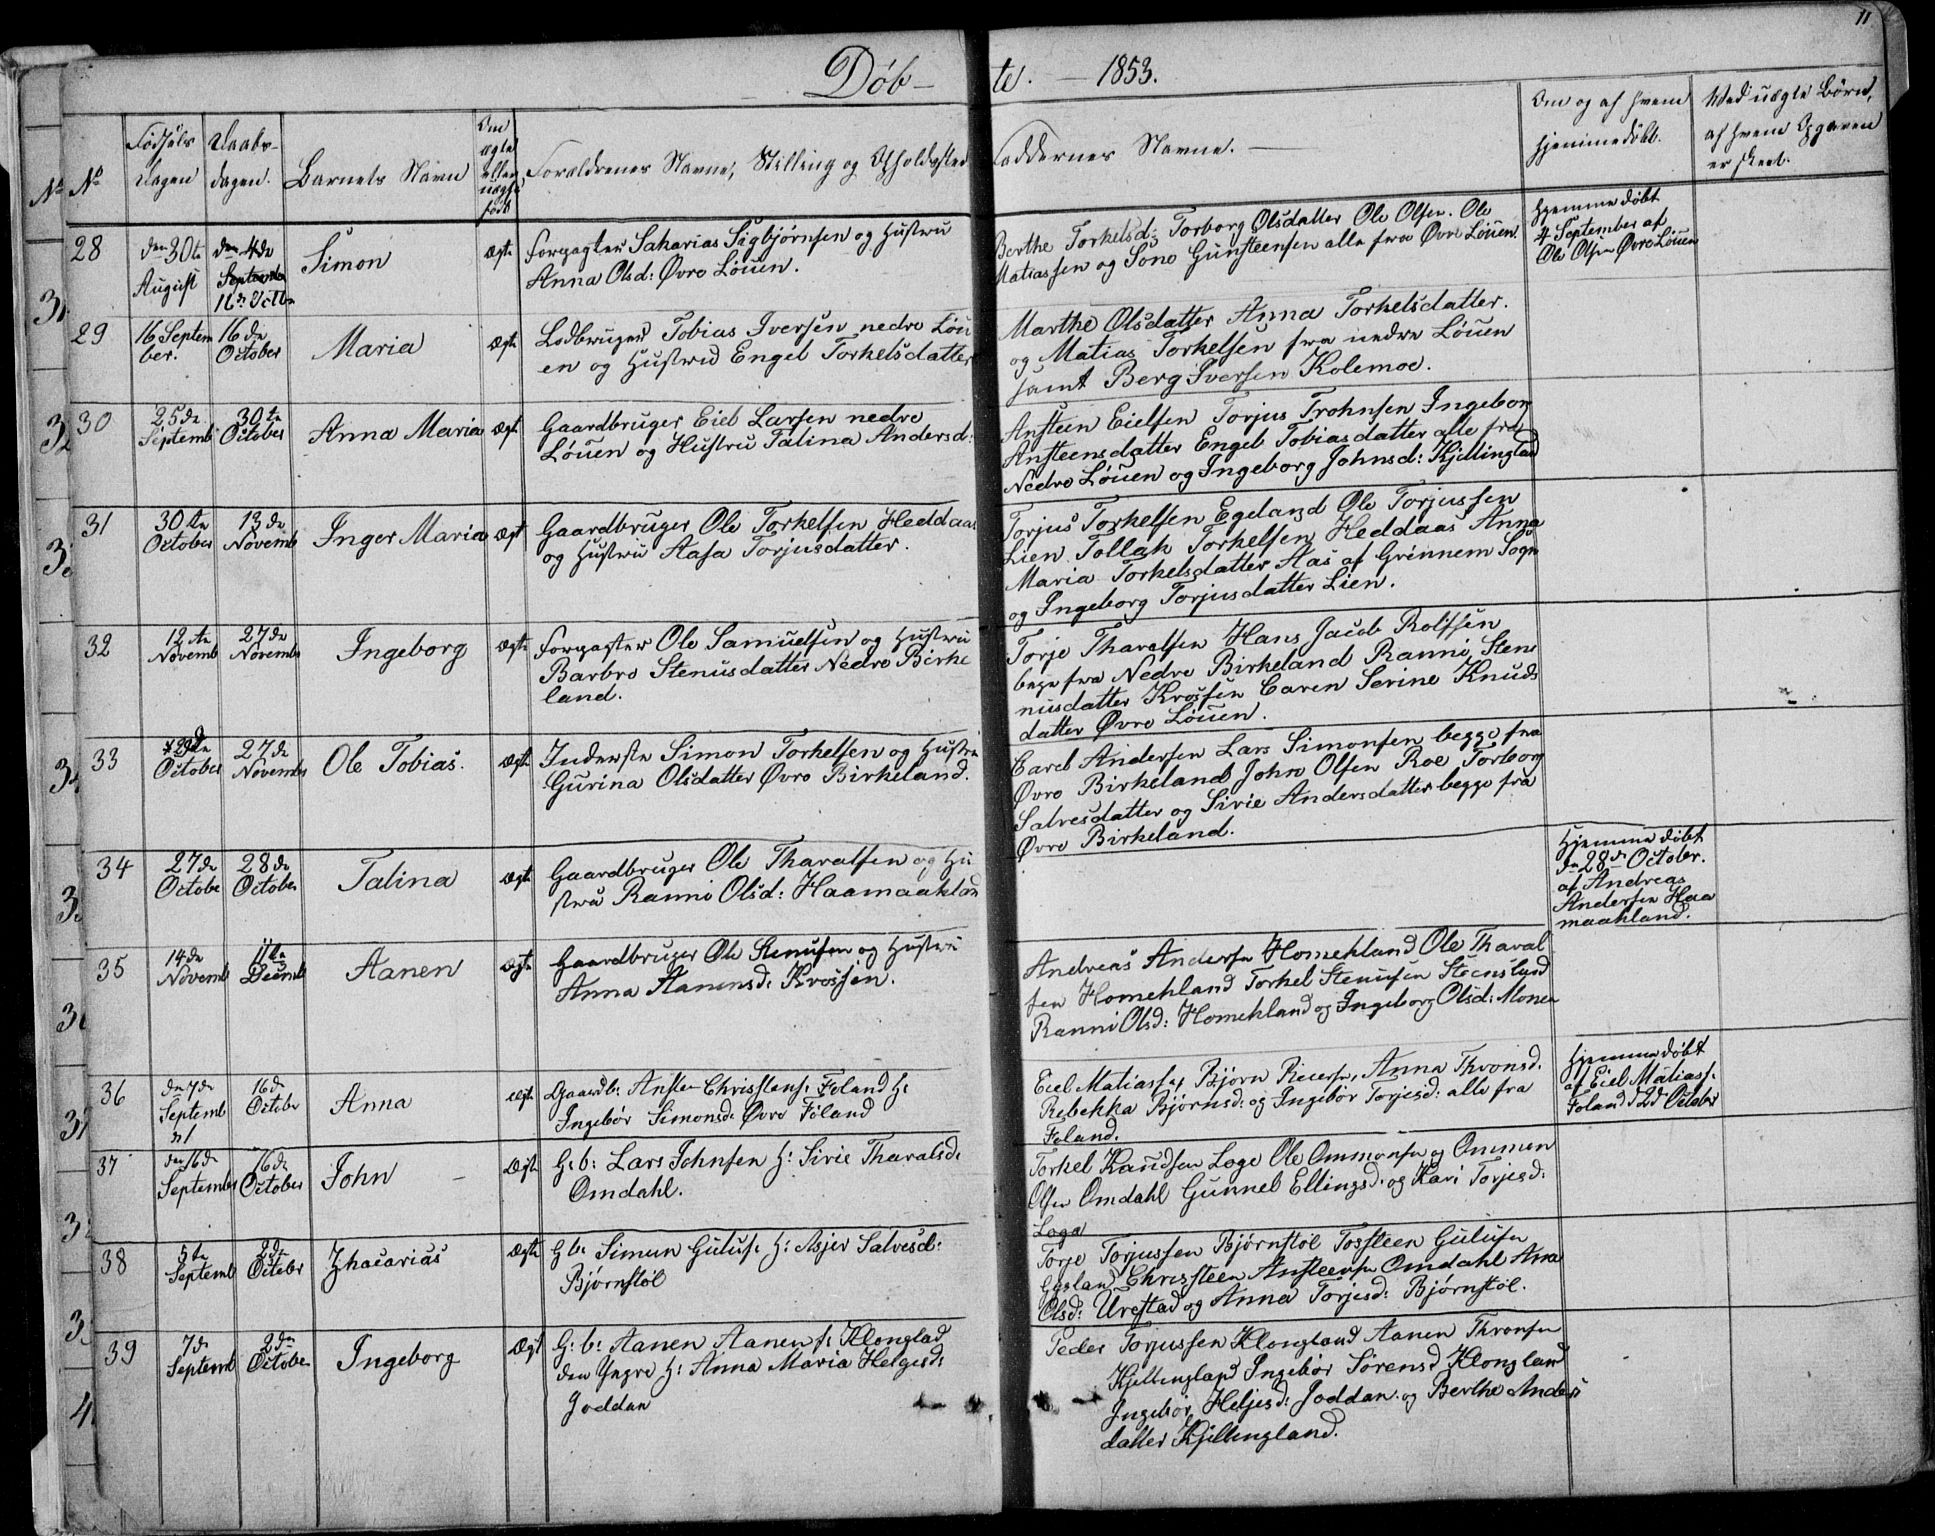 11
Døb-
te. — 1853.
No
No
Fødsels
Dagen
Daabs-
dagen.
Barnets Navn
Om
ægte
eller
uægte
født
Forældrenes Navne, Stilling og Opholdssted
Faddernes Navne. —
Om og af hvem
hjemmedøbt.
Ved uægte Børn,
af hvem Opgaven
er skeet.
28
den 30te
August
den 4de
September
16de Octbr
Simon
ægte
Forpagter Sakarias Sigbjørnsen og Hustru
Anna Olsd: Øvre Løuen.
Berthe Torkelsd: Torborg Olsdatter Ole Olsen. Ole
Matiassen og Sone Gunsteensen alle fra Øvre Løuen
Hjemme døbt
4 September af
Ole Olsen Øvre Løuen
29
16 Septem
ber.
16de
October
Maria
Ægte
Lodbruger Tobias Iversen nedre Løu
en og Hustrue Engel Torkelsdatter
Marthe Olsdatter Anna Torkelsdatter.
og Matias Torkelsen fra nedre Løuen
samt Berg Iversen Kolemoe.
30
25de
Septemb
30te
October
Anna Maria
Ægte
Gaardbruger Eiel Larsen nedre
Løuen og Hustru Talina Andersd:
Ansteen Eielsen Torjus Trohnsen Ingebor
Ansteensdatter Engel Tobiasdatter alle fra
Nedre Løuen og Ingeborg Johnsd: Kjellingland
31
30te
October
13de
Novemb
Inger Maria
Ægte
Gaardbruger Ole Torkelsen Heddaas
og Hustru Aasa Torjusdatter.
Torjus Torkelsen Egeland Ole Torjussen
Lien Tollak Torkelsen Heddaas Anna
Maria Torkelsdatter Aas af Grinnem Sogn
og Ingeborg Torjusdatter Lien.
32
12te
Novemb
27de
Novembr
Ingeborg
Ægte
Forpagter Ole Samuelsen og Hustru
Barbro Stenusdatter Nedre Birke
land.
Torje Tharalsen Hans Jacob Rolfsen
begge fra Nedre Birkeland Ranni Sten
nusdatter Krossen Caren Serine Knuds
datter Øvre Løuen.
33
29de
October
27de
Novembr
Ole Tobias.
Ægte
Inderste Simon Torkelsen og Hustru
Gurina Olsdatter Øvre Birkeland.
Carel Andersen Lars Simonsen begge fra
Øvre Birkeland John Olsen Roe Torborg
Salvesdatter og Sirie Andersdatter begge fra
Øvre Birkeland.
34
27de
October
28de
October
Talina
Ægte
Gaardbruger Ole Tharalsen og Hu
stru Ranni Olsd: Haamaakland
Hjemme døbt
den 28de October.
af Andreas
Andersen Haa
maakland.
35
14de
Novemb
11te
Decemb
Aanen
Ægte
Gaardbruger Ole Stenusen og Hustru
Anna Aanensd: Krossen.
Andreas Andersen Homekland Ole Tharal
sen Homekland Torkel Stenusen Steensland
Ranni Olsd: Homekland og Ingeborg Olsd: Monen
36
den 7de
Septemb
16de
October
Anna
ægte
Gaardb: Ansten Christens: Foland H:
Ingebor Simonsd: Øvre Foland
Eiel Matiassen, Bjørn Reiersen, Anna Thronsd.
Rebekka Bjørnsd: og Ingebor Torjesd: alle fra
Foland.
Hjemmedøbt
af Eiel Matiass:
Foland d 2d October
37
den 16de
September
16de
October
John
Ægte
G: b: Lars Johnsen H: Sirie Tharalsd:
Omdahl.
Torkel Knudsen Loge Ole Ommonsen og Ommun
Olsen Omdahl Gunnel Ellingsd. og Kari Torjesd:
Loga
38
5te
Septemb
2de
October
Zhacarias
Ægte
Gb: Simun Gulus: H: Asjer Salvesd:
Bjørnstøl
Torje Torjussen Bjørnstøl Tosteen Gulusen
Egsland Christeen Ansteensen Omdahl Ana
Olsd: Urestad og Anna Torjesd: Bjørnstøl.
39
7de
Septemb
2den
October
Ingeborg
Ægte
G: b: Aanen Aanens: Klongland
den Yngre H: Anna Maria Helgesd:
Joddan
Peder Torjussen Klongland Aanen Thronsen
Kjellingland Ingebor Sørensd Klongland
Ingebor Heljesd: Joddan og Berthe Anders
datter Kjellingland.